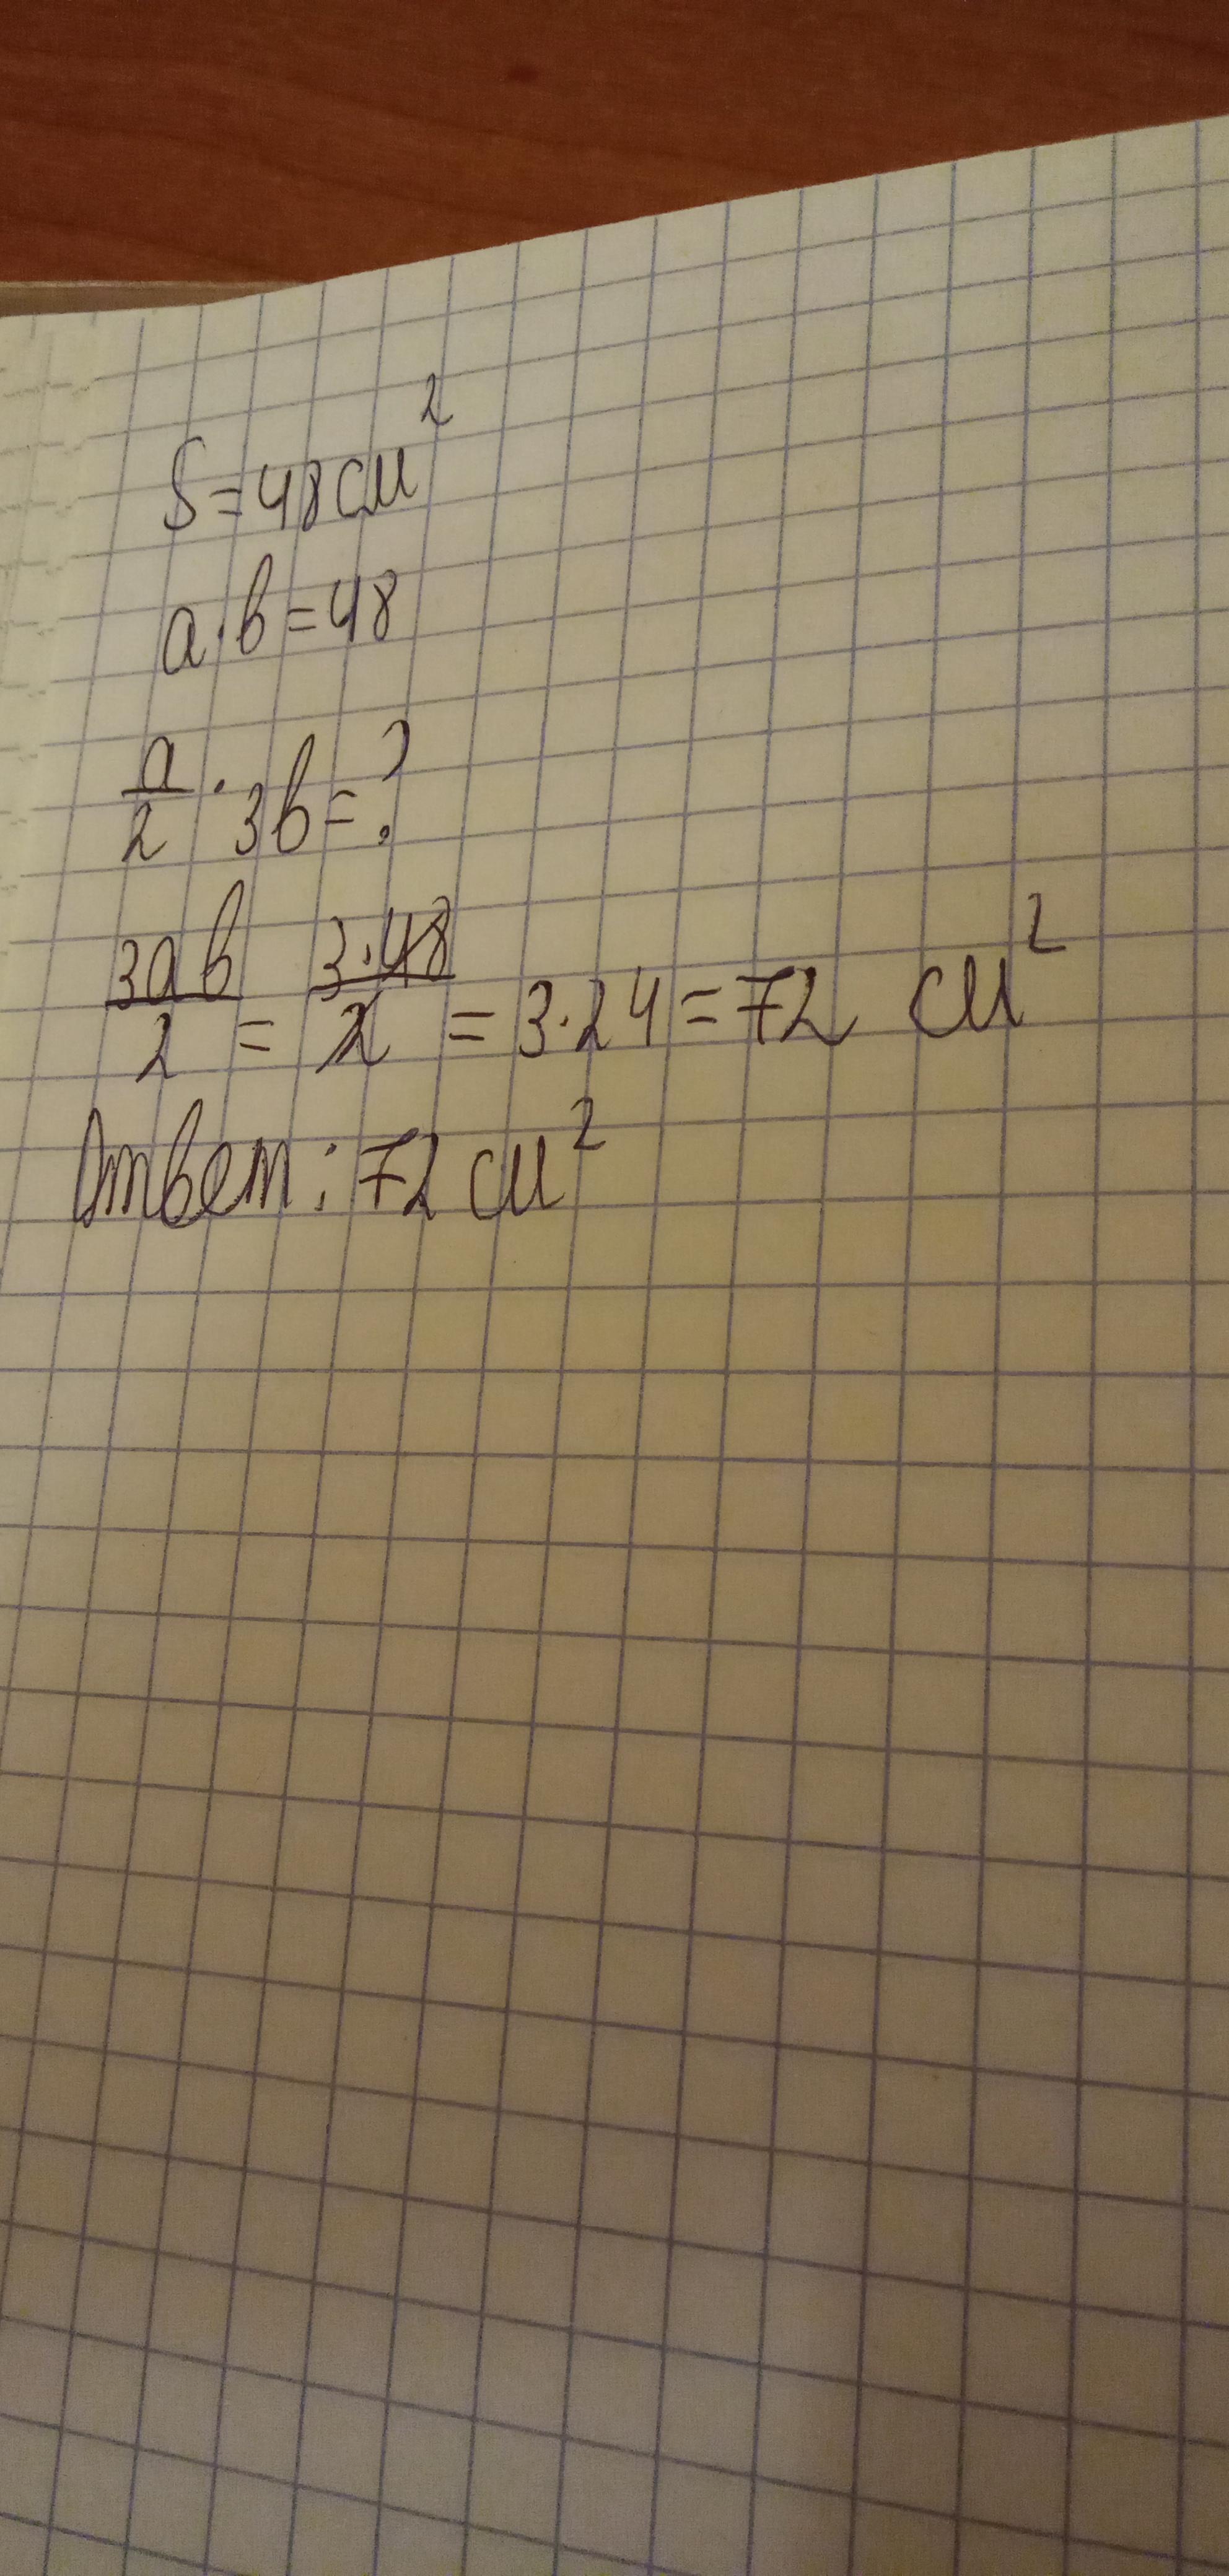 S=48см²
a·b=48
a/2 · 3b=?
3ab/2 = 3·48/2 = 3·24=72 см²
Ответ: 72 см²